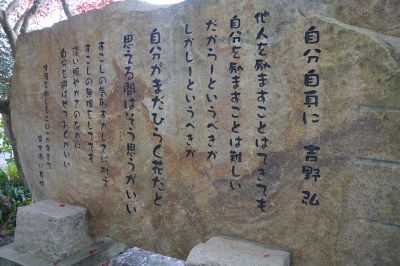 自分自身に 吉野弘
他人を励ますことはできても
自分を励ますことは難しい
だから―というべきか
しかし―というべきか
自分がまだひらく花だと
思える間はそう思うがいい
すこしの気恥ずかしさに耐え
すこしの無理をしてでも
淡い賑やかさのなかに
自分を遊ばせておくがいい